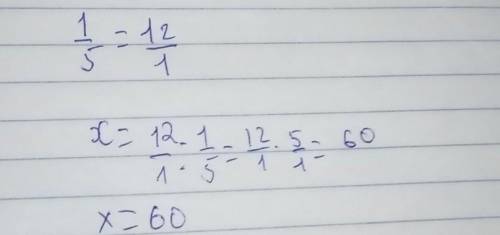 1/5 = 12/1
x = 12/1 : 1/5 = 12/1 · 5/1 = 60
x = 60